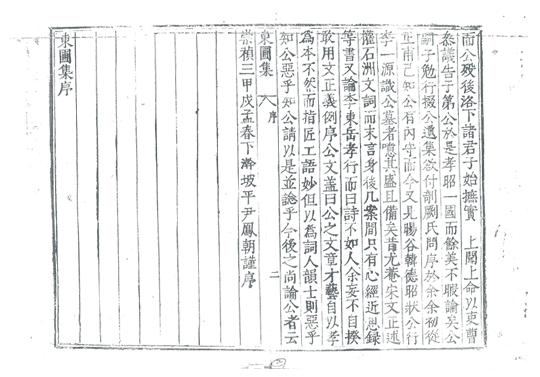 而公歿後洛下諸君子始撫實　上聞上命以吏曹
叅議告于第公於是孝昭一國而餘美不暇論矣公
嗣子勉行掇公遺集欲付剞劂氏問序於余余初從
正甫已知公有內守而今又見暘谷韓德昭狀公行
李一源識公墓者噴其盛且備矣昔尤菴宋文正述
權石洲文詞而末言身後几案間只有心經近思錄
等書又論李東岳孝行而曰詩不如人余妄不自揆
敢用文正義例序公文盖曰公之文章才藝自以孝
為本不然而指匠工語妙但以為詞人韻士則惡乎
知公惡乎知公請以是並諗乎今後之尚論公者云
東圃集　序　二
崇禎三甲戌孟春下澣坡平尹鳳朝謹序
東圃集序